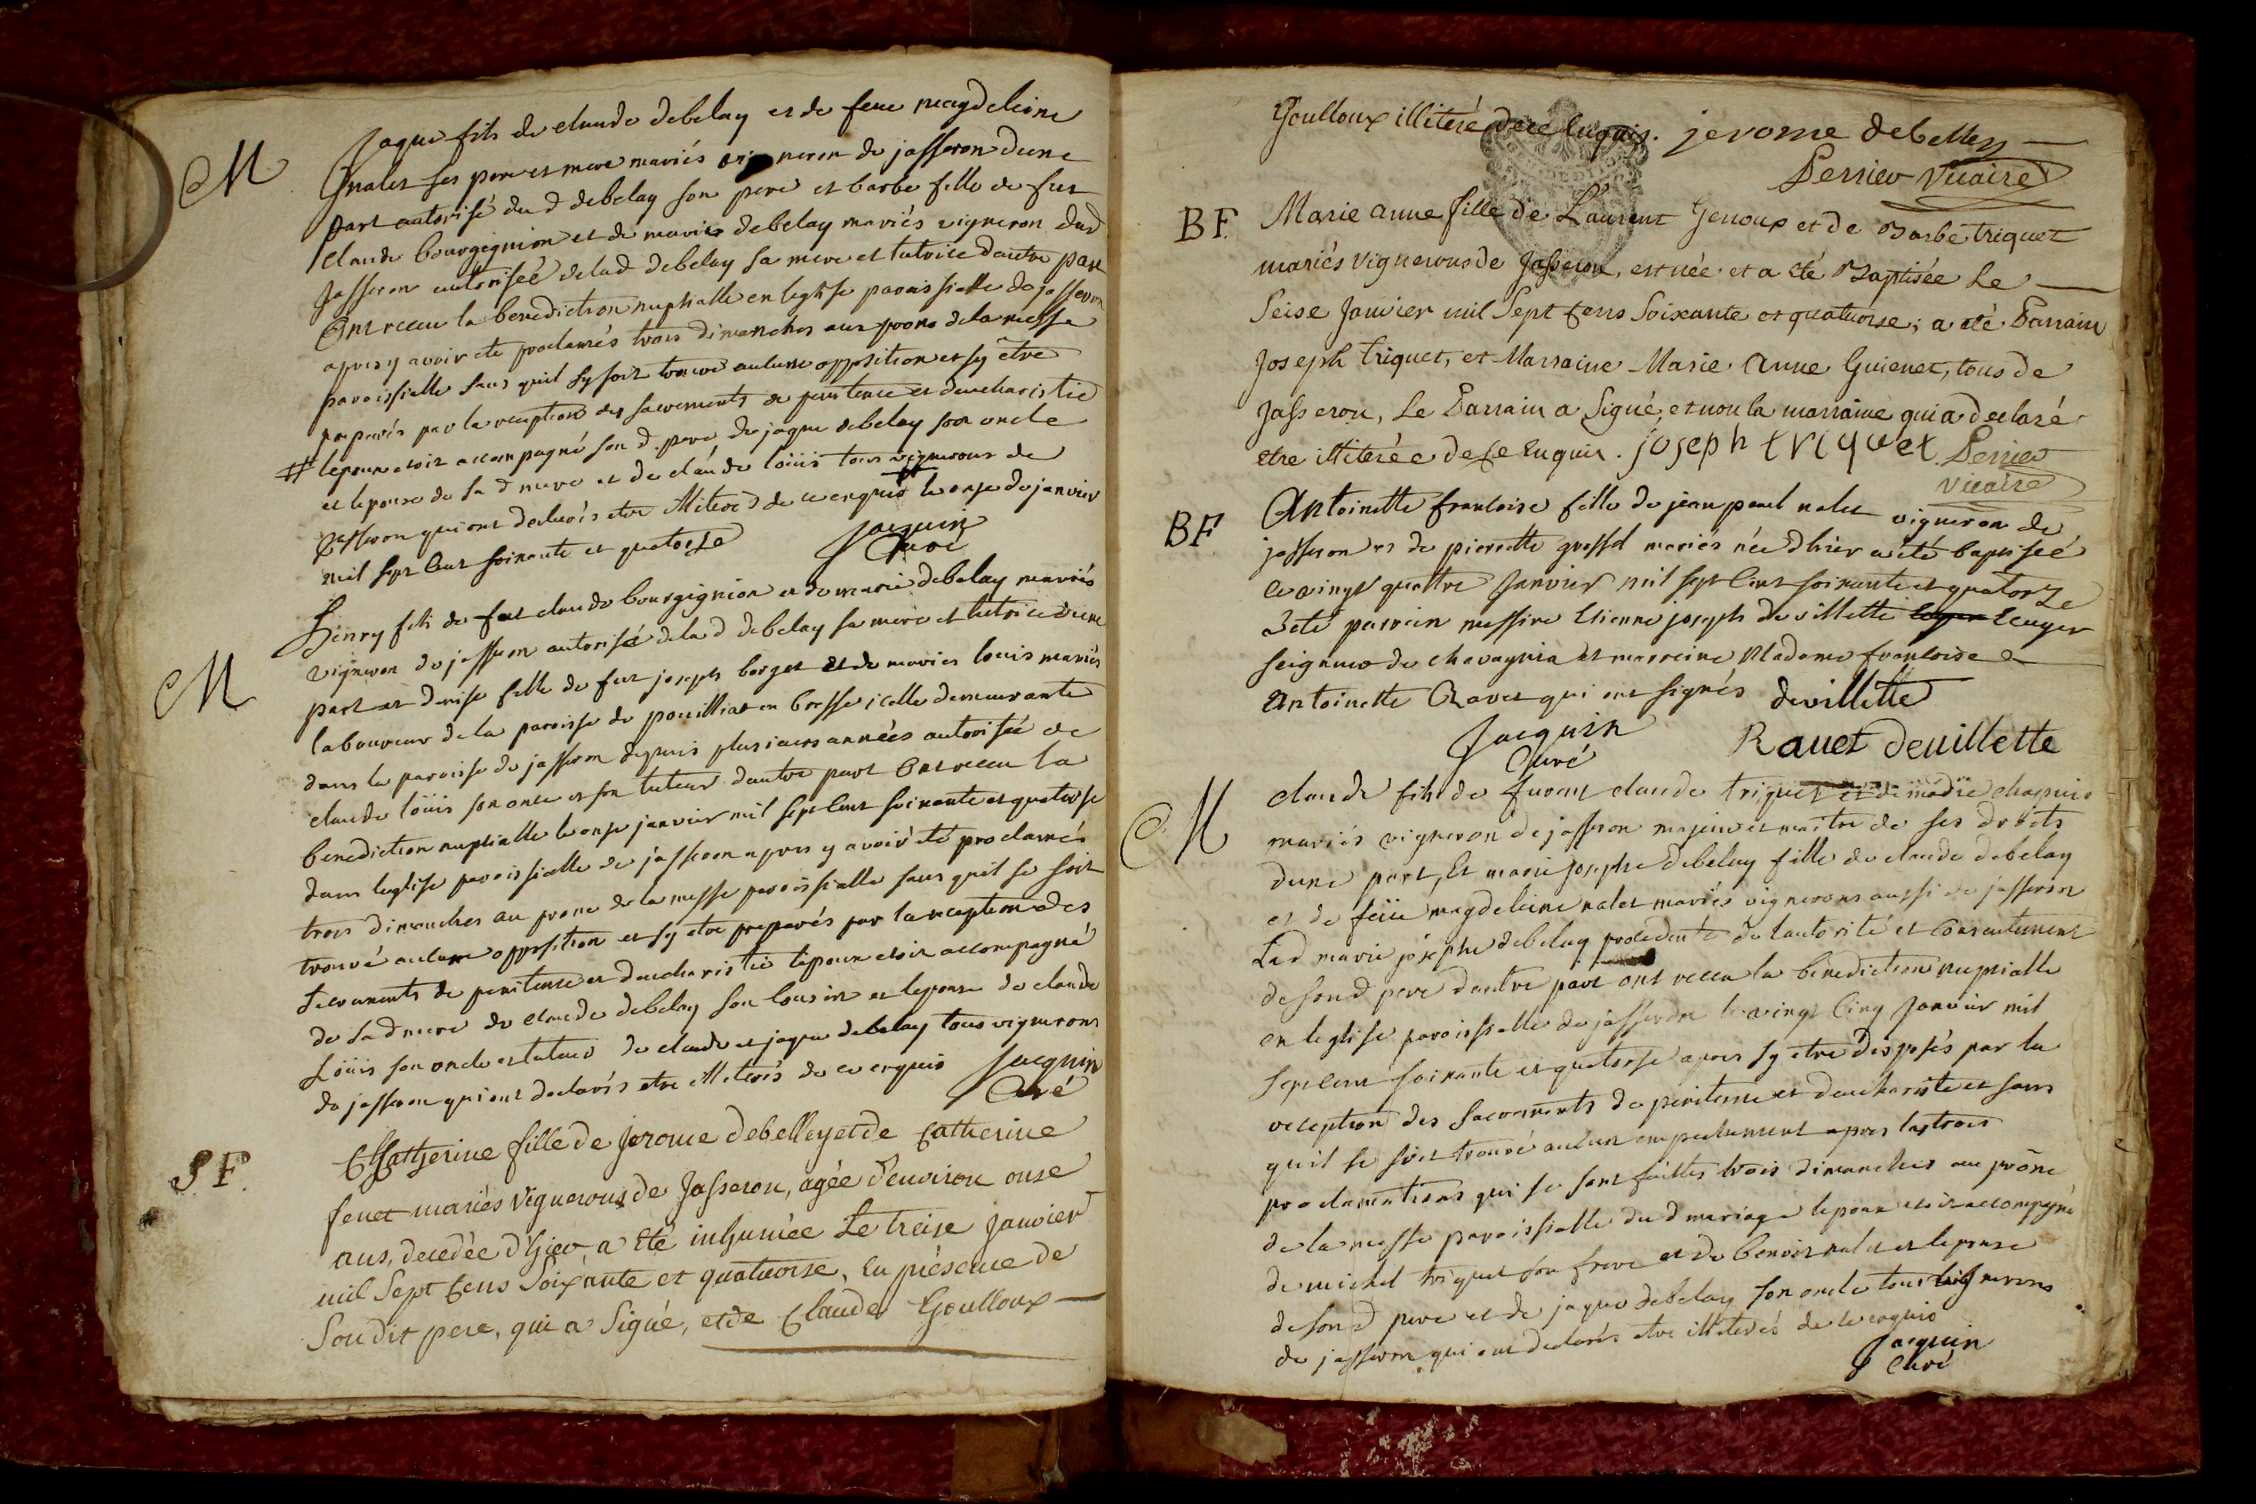 M
Jaque fils de claude debelay et de feue magdeleine
nalet ses pere et mere mariés vigneron de jasseron dune
part autorisé dud debelay son pere et barbe fille de fut
claude bourgignion et de marie debelay mariés vigneron dud
jasseron autorisée delad debelay sa mere et tutrice dautre part
Ont receu la benediction nuptialle en leglise paroissialle de jasseron
apres y avoir eté proclamés trois dimanches au prone dela messe
paroissialle sans quil sy soit trouvé aulcune opposition et sy être
preparés par la reception des sacrements de penitence et deucharistie
# lepoux etoit accompagné son d. pere, de jaque debelay son oncle
et lepouse de sa d mere et de claude loüis tous vignerons de
jasseron qui ont declarés etre illiterés de ce enquis le onze de janvier
mil sept cent soixante et quatorze
Jacquin
Curé
M
Henry fils de fut claude bourgignion et de marie debelay mariés
vigneron de jasseron autorisé delad debelay sa mere et tutrice dune
part et denise fille de fut joseph borget et de marie louis mariés
laboureur de la paroisse de pouilliat en bresse icelle demeurante
dans la paroisse de jasseron depuis plusieurs années autorisée de
claude loüis son oncle et son tuteur dautre part Ont receu la
benediction nuptialle le onze janvier mil sept cent soixante et quatorse
dans leglise paroissialle de jasseron apres y avoir eté proclamés
trois dimanches au prone de la messe paroissialle sans quil se soit
trouvé aulcune opposition et sy etre preparés par la reception des
sacrements de penitence et deucharistie lepoux etoit accompagné
de sad mere de claude debelay son cousin et lepouse de claude
Loüis son oncle et tuteur de claude et jaque debelay tous vignerons
de jasseron qui ont declarés etre illiterés de ce enquis
Jacquin
Curé
S F.
Catherine fille de Jerome debelley et de Catherine
fenet mariés vignerons de Jasseron, agée d'environ onse
ans, decedée d'hier, a été inhumée Le treise Janvier
mil Sept Cens Soixante et quatuorse, En présence de
Son dit pere, qui a Signé, et de Claude Goulloux
Goulloux illiteré de ce Enquis. jerome debelley
Perrier Vicaire
BF.
Marie anne fille de Laurent Genoux et de Barbe triquet
mariés vignerons de Jasseron, est née et a été Baptisée Le
Seise Janvier mil Sept Cens Soixante et quatuorse; a été Parrain
Joseph triquet, et Marraine Marie Anne Guienet, tous de
Jasseron, Le Parrain a Signé, et non la marraine qui a declaré
etre illiterée de Ce Enquis. joseph triquet Perrier
Vicaire
BF
Antoinette francoise fille de jean paul nalet vigneron de
jasseron et de pierrette grossel mariés née dhier a eté baptisée
le vingt quattre janvier mil sept cent soixante et quatorze
a eté parrein messire Etienne joseph de villette
seigneur de chavagnia et marreine Madame francoise
antoinette Ravet qui ont signés devillette
Jacquin
Curé
Rauet deuillette
M
claude fils de fuemt claude triquet et de marie chapuis
mariés vigneron de jasseron majeur et maitre de ses droits
dune part, Et marie josephe debelay fille de claude debelay
et de feüe magdeleine nalet mariés vignerons aussi de jasseron
Lad marie jósephe debelay procedente de lautorité et consentement
de son d pere dautre part ont receu la bénediction nuptialle
en leglise paroissialle de jasseron le vingt Cinq Janvier mil
sept cent soixante et quatorse apres sy etre disposés par la
reception des sacrements de penitence et deucharistie et sans
quil se soit trouvé aulcun empechement apres les trois
proclamations qui se sont faittes trois dimanches au prône
de la messe paroissialle du d mariage lepoux etoit accompagné
de michel triquet son frere et de benoit nalet et lepouse
de son d pere et de jaque debelay son oncle tous vignerons
de jasseron qui ont declarés etre illiterés de ce enquis
Jacquin
Curé